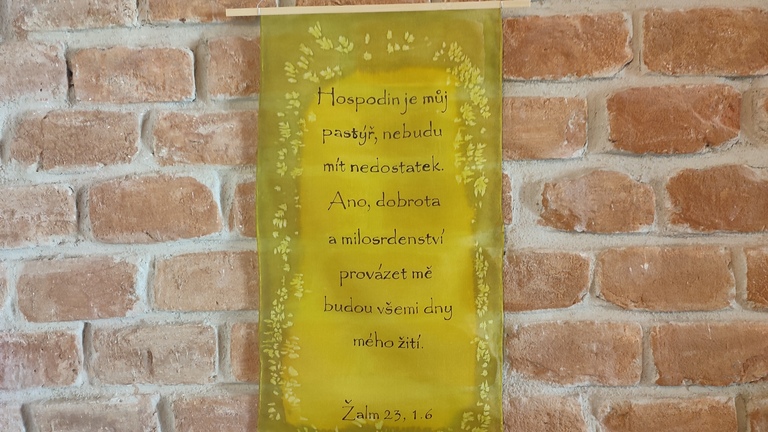 Hospodin je můj
pastýř, nebudu
mít nedostatek.
Ano, dobrota
a milosrdenství
provázet mě
budou všemi dny
mého žití.
Žalm 23, 1.6